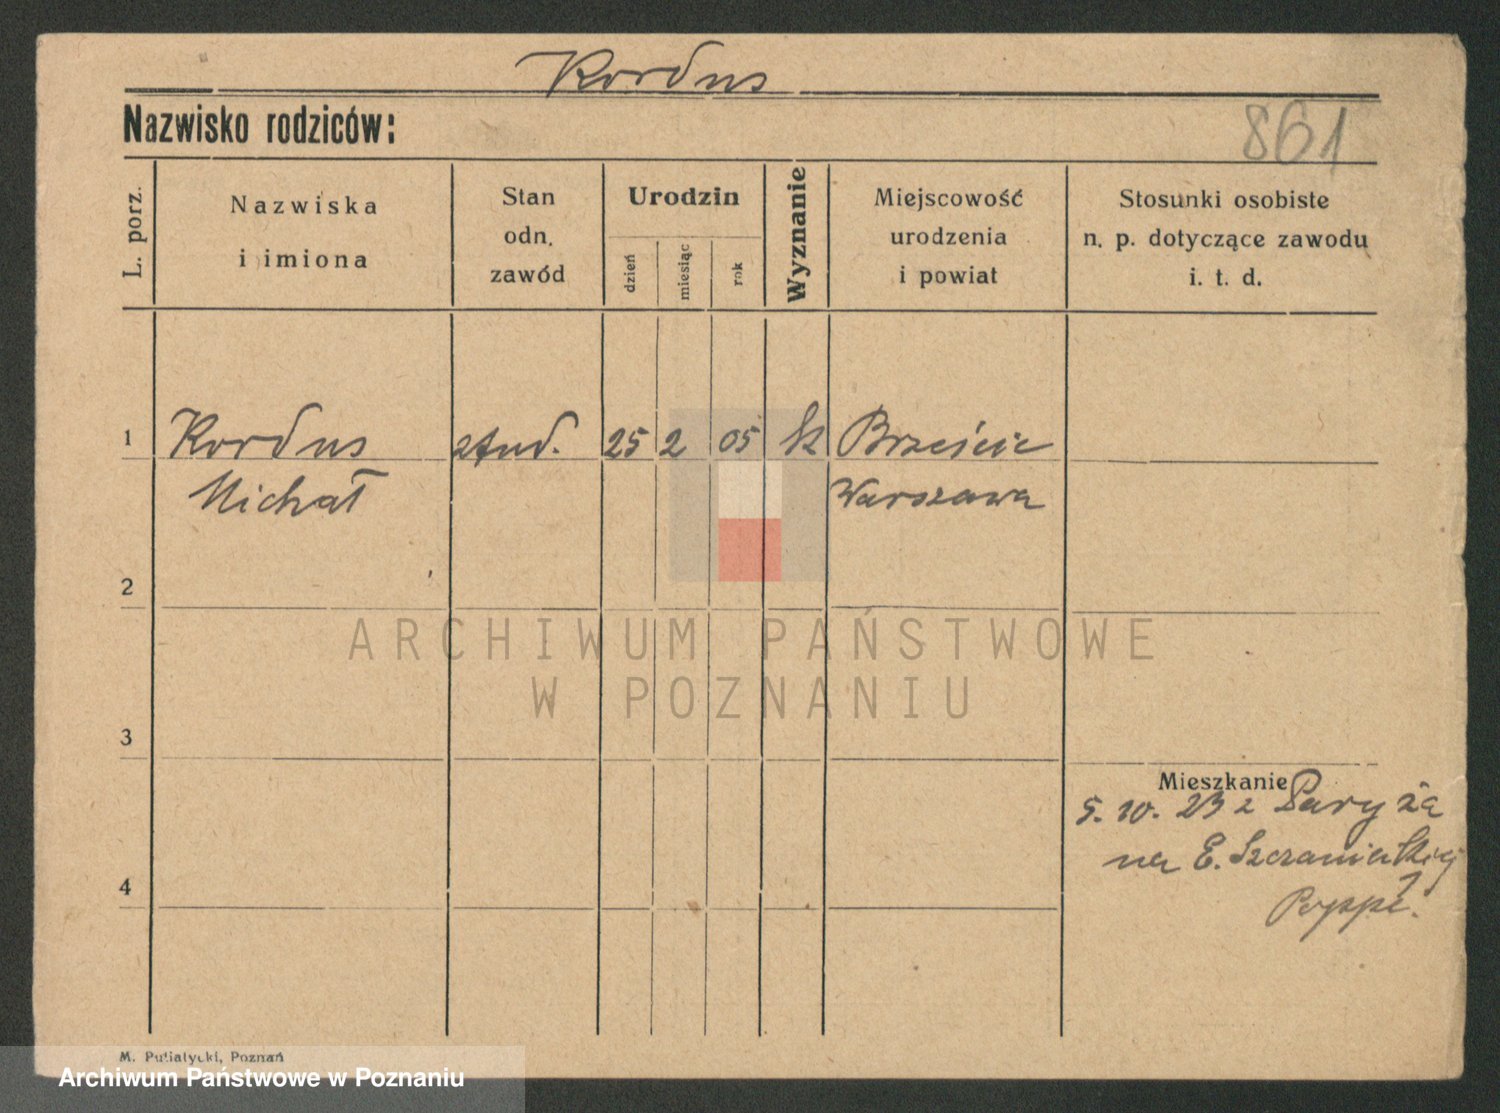 Kordus
Nazwisko rodziców:
861
L. porz.
Nazwiska
i imiona
Stan
odn.
zawód
Urodzin
dzień
miesiąc
rok
Wyznanie
Miejscowość
urodzenia
i powiat
Stosunki osobiste
n. p. dotyczące zawodu
i. t. d.
1 Kordus stud. 25 2 05 k
Michał Warszawa
2
ARCHIWUM PAŃSTWOWE
W POZNANIU
3
Mieszkanie
5. 10. 23 z Paryża
na E.
4
M. Putiatycki, Poznań
Archiwum Państwowe w Poznaniu